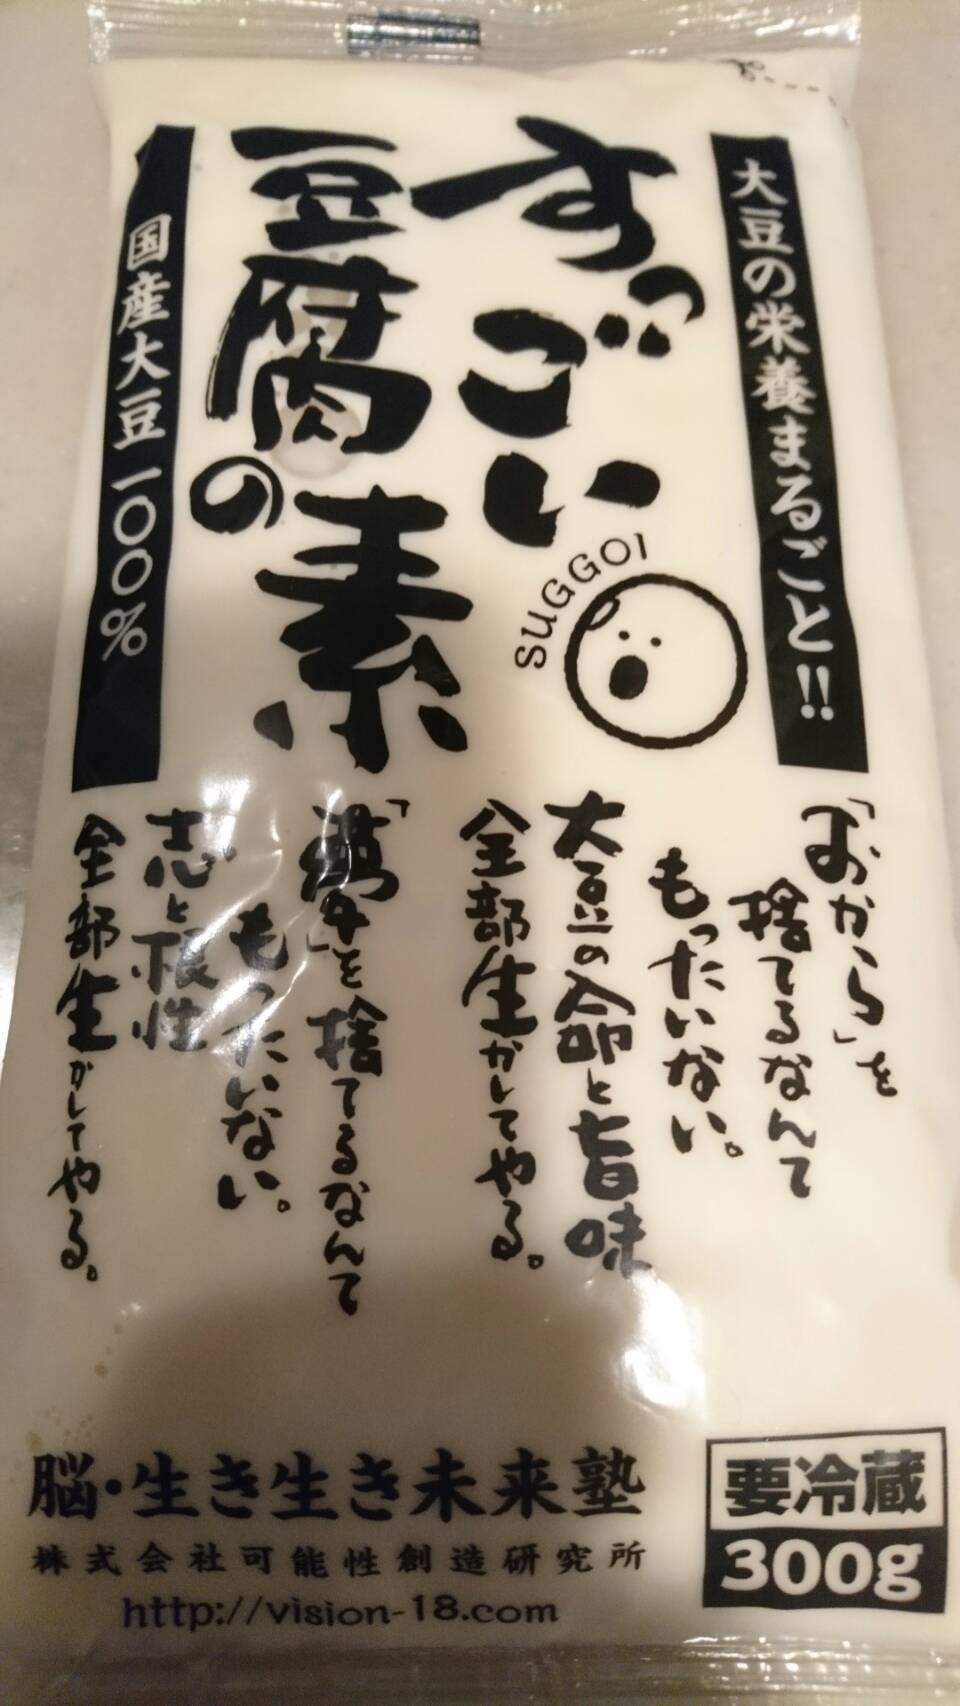 大豆の栄養まるごと!!
すっごい
豆腐の素
SUGGOI
国産大豆一〇〇%
「おから」を
捨てるなんて
もったいない。
大豆の命と旨味
全部生かしてやる。
」を捨てるなんて
もったいない。
志と根性
全部生かしてやる。
脳・生き生き未来塾
株式会社可能性創造研究所
http://vision-18.com
要冷蔵
300g